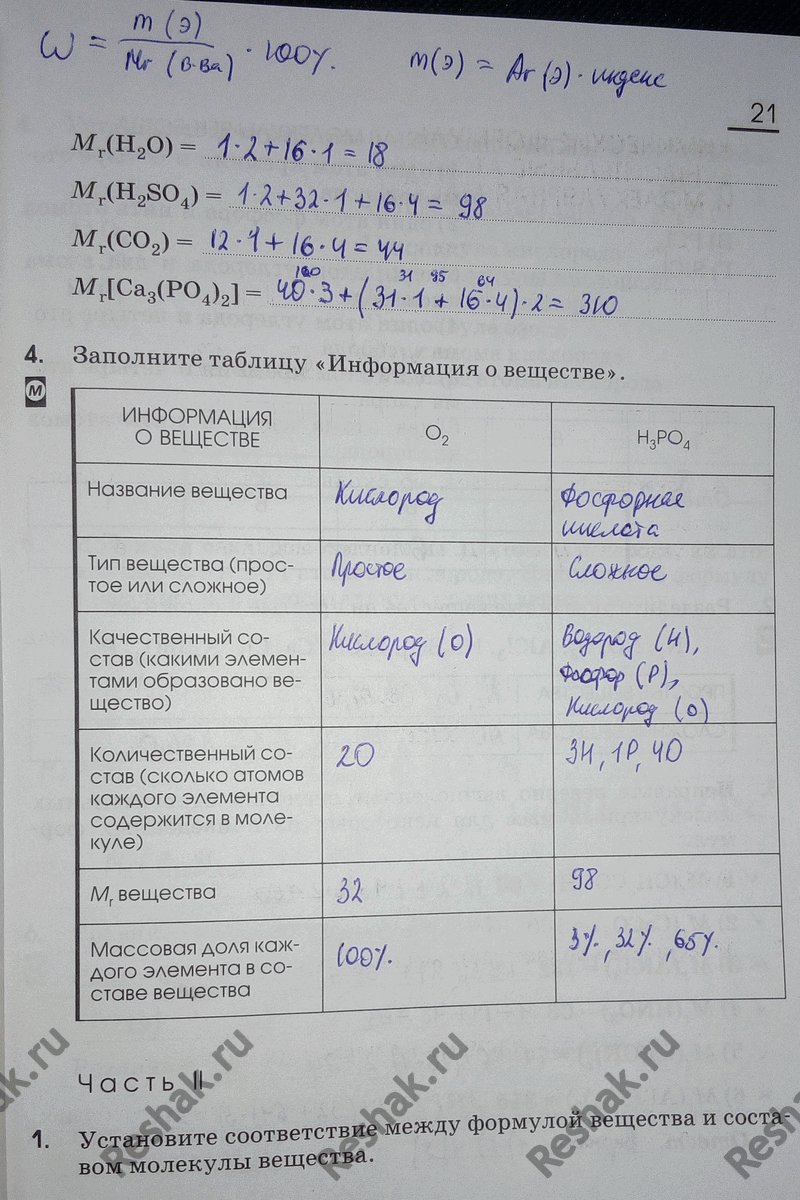 ω = m (э) / Mr (в-ва) · 100%.   m(э) = Ar (э) · индекс
21
Mr(H₂O) = 1·2+16·1=18
Mr(H₂SO₄) = 1·2+32·1+16·4=98
Mr(CO₂) = 12·1+16·4=44
120 31 95 64
Mr[Ca₃(PO₄)₂] = 40·3+(31·1+16·4)·2=310
4. Заполните таблицу «Информация о веществе».
М
ИНФОРМАЦИЯ
О ВЕЩЕСТВЕ
O₂
H₃PO₄
Название вещества
Кислород
Фосфорная
кислота
Тип вещества (прос-
тое или сложное)
Простое
Сложное
Качественный со-
став (какими элемен-
тами образовано ве-
щество)
Кислород (O)
Водород (H),
Фосфор (P),
Кислород (O)
Количественный со-
став (сколько атомов
каждого элемента
содержится в моле-
куле)
2O
3H, 1P, 4O
Mr вещества
32
98
Массовая доля каж-
дого элемента в со-
ставе вещества
100%.
3%, 32%, 65%.
Часть II
1. Установите соответствие между формулой вещества и соста-
вом молекулы вещества.
Reshak.ru
Reshak.ru
Reshak.ru
Reshak.ru
Reshak.ru